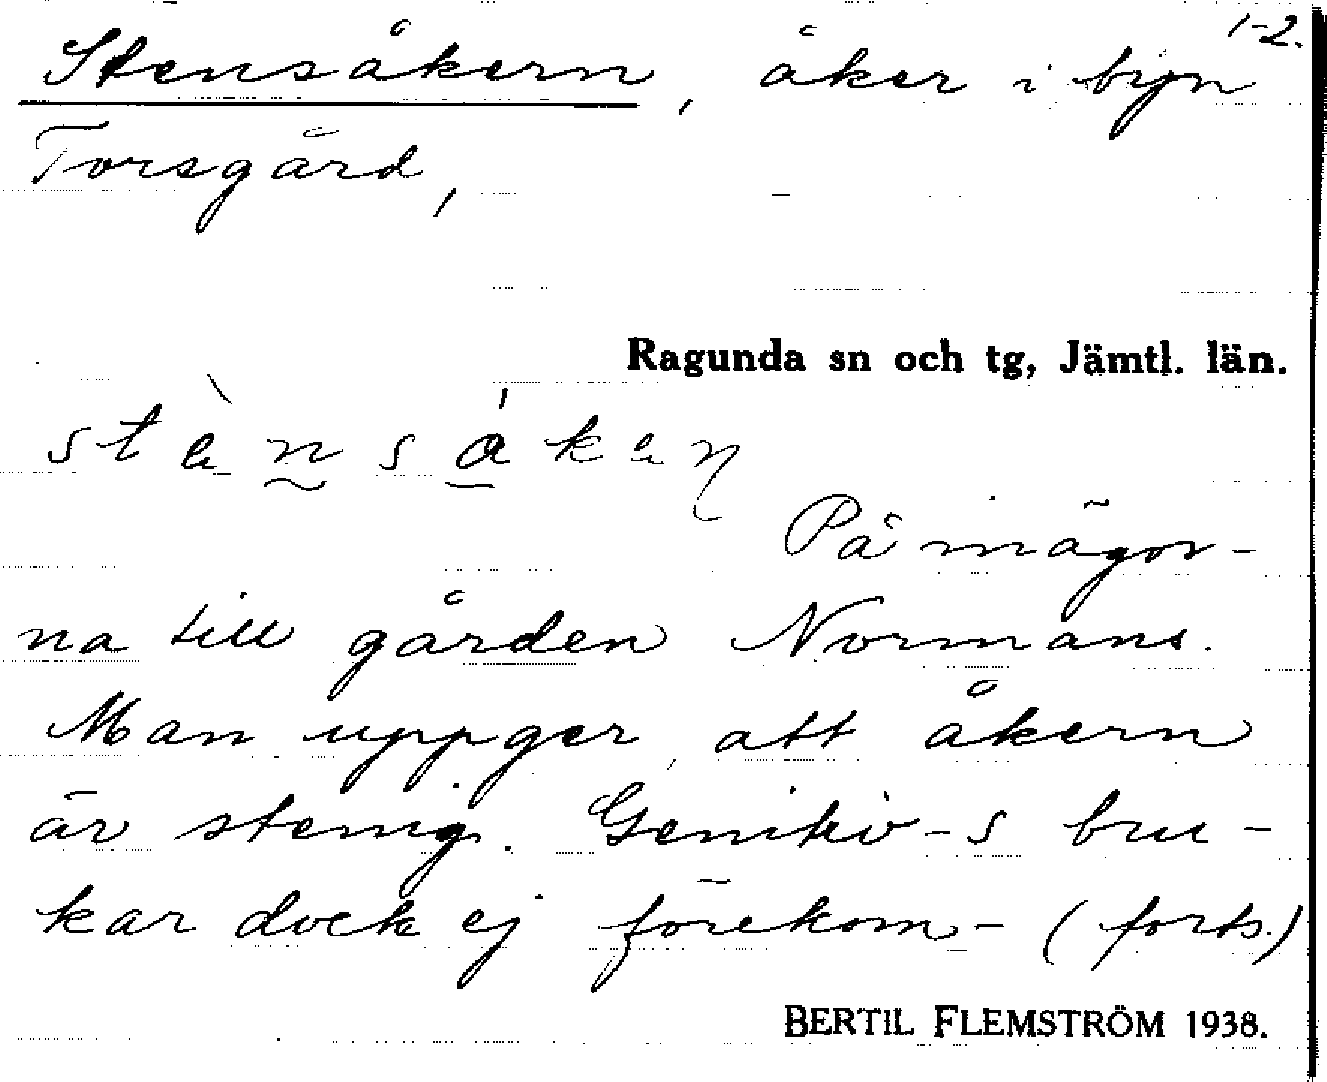 1-2.
Stensåkern, åker i byn
Torsgård,
Ragunda sn och tg, Jämtl. län.
På mägor-
na till gården Normans.
Man uppger, att åkern
är stenig. Genitiv-s bru-
kar dock ej förekom- (forts.)
BERTIL FLEMSTRÖM 1938.